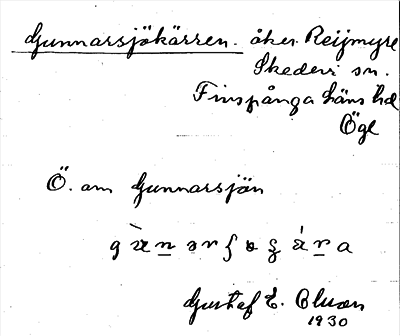 Gunnarsjökärren. åker Reijmyre
Skedevi sn.
Finspånga läns hd
Ögl
Ö. om Gunnarsjön
Gustaf E.
1930